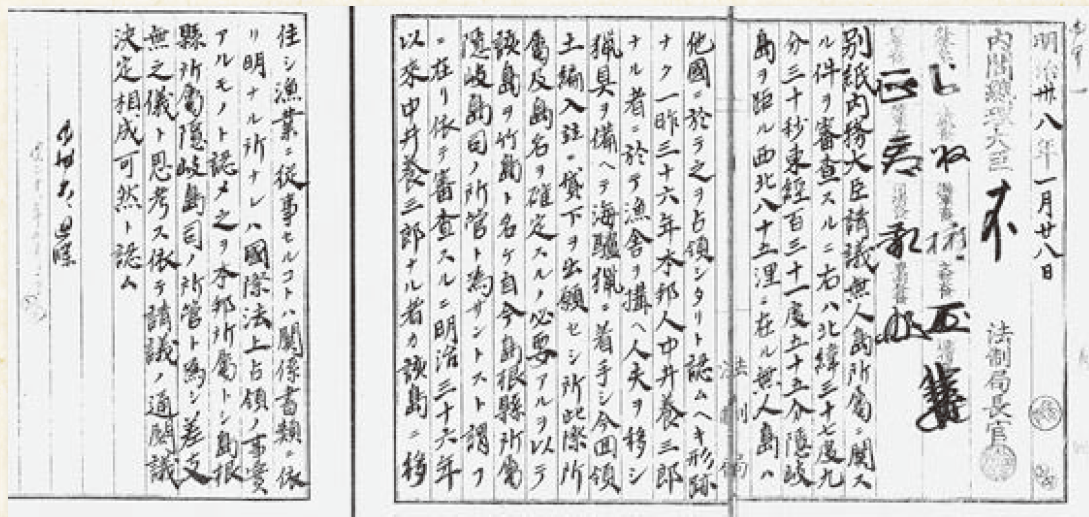 明治卅八年一月廿八日
内閣總理大臣
法制局長官
別紙内務大臣請議無人島所屬ニ関ス
ル件ヲ審査スルニ右ハ北緯三十七度九
分三十秒東経百三十一度五十五分隠岐
島ヲ距ル西北八十五浬ニ在ル無人島ハ
他國ニ於テ之ヲ占領シタリト認ムヘキ形跡
ナク一昨三十六年本邦人中井養三郎
ナル者ニ於テ漁舎ヲ搆ヘ人夫ヲ移シ
猟具ヲ備ヘテ海驢猟ニ着手シ今回領
土編入並ニ貸下ヲ出願セシ所此際所
屬及島名ヲ確定スルノ必要アルヲ以テ
該島ヲ竹島ト名ケ自今島根縣所屬
隠岐島司ノ所管ト為サントスト謂フ
ニ在リ依テ審査スルニ明治三十六年
以来中井養三郎ナル者カ該島ニ移
住シ漁業ニ從事セルコトハ関係書類ニ依
リ明ナル所ナレハ國際法上占領ノ事實
アルモノト認メ之ヲ本邦所屬トシ島根
縣所屬隠岐島司ノ所管ト為シ差支
無之儀ト思考ス依テ請議ノ通閣議
決定相成可然ト認ム
法制局